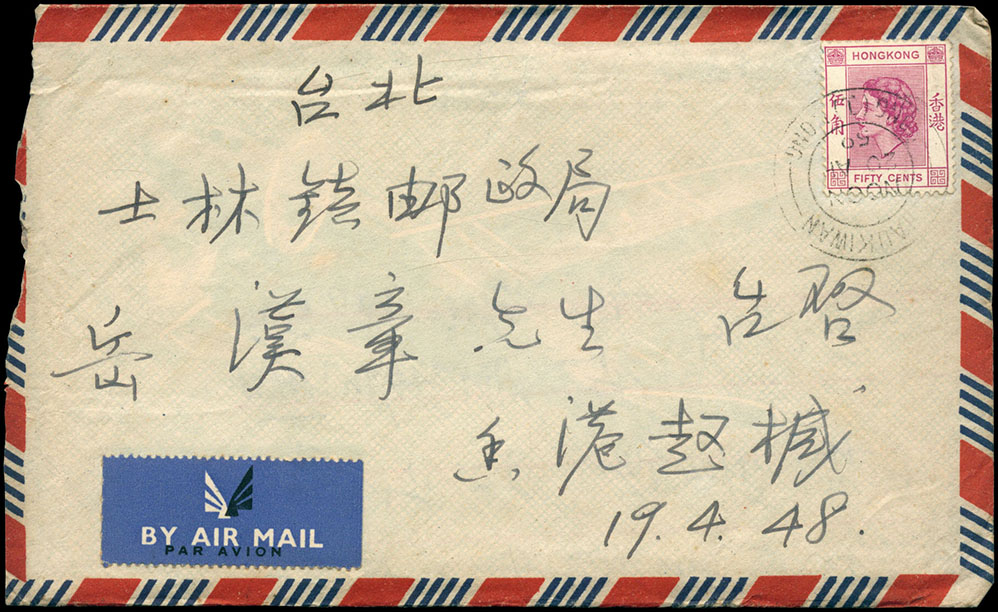 HONGKONG
香港
伍角
FIFTY CENTS
台北
士林鎮邮政局
岳漢章先生 台啓
香港赵械
19.4.48.
BY AIR MAIL
PAR AVION